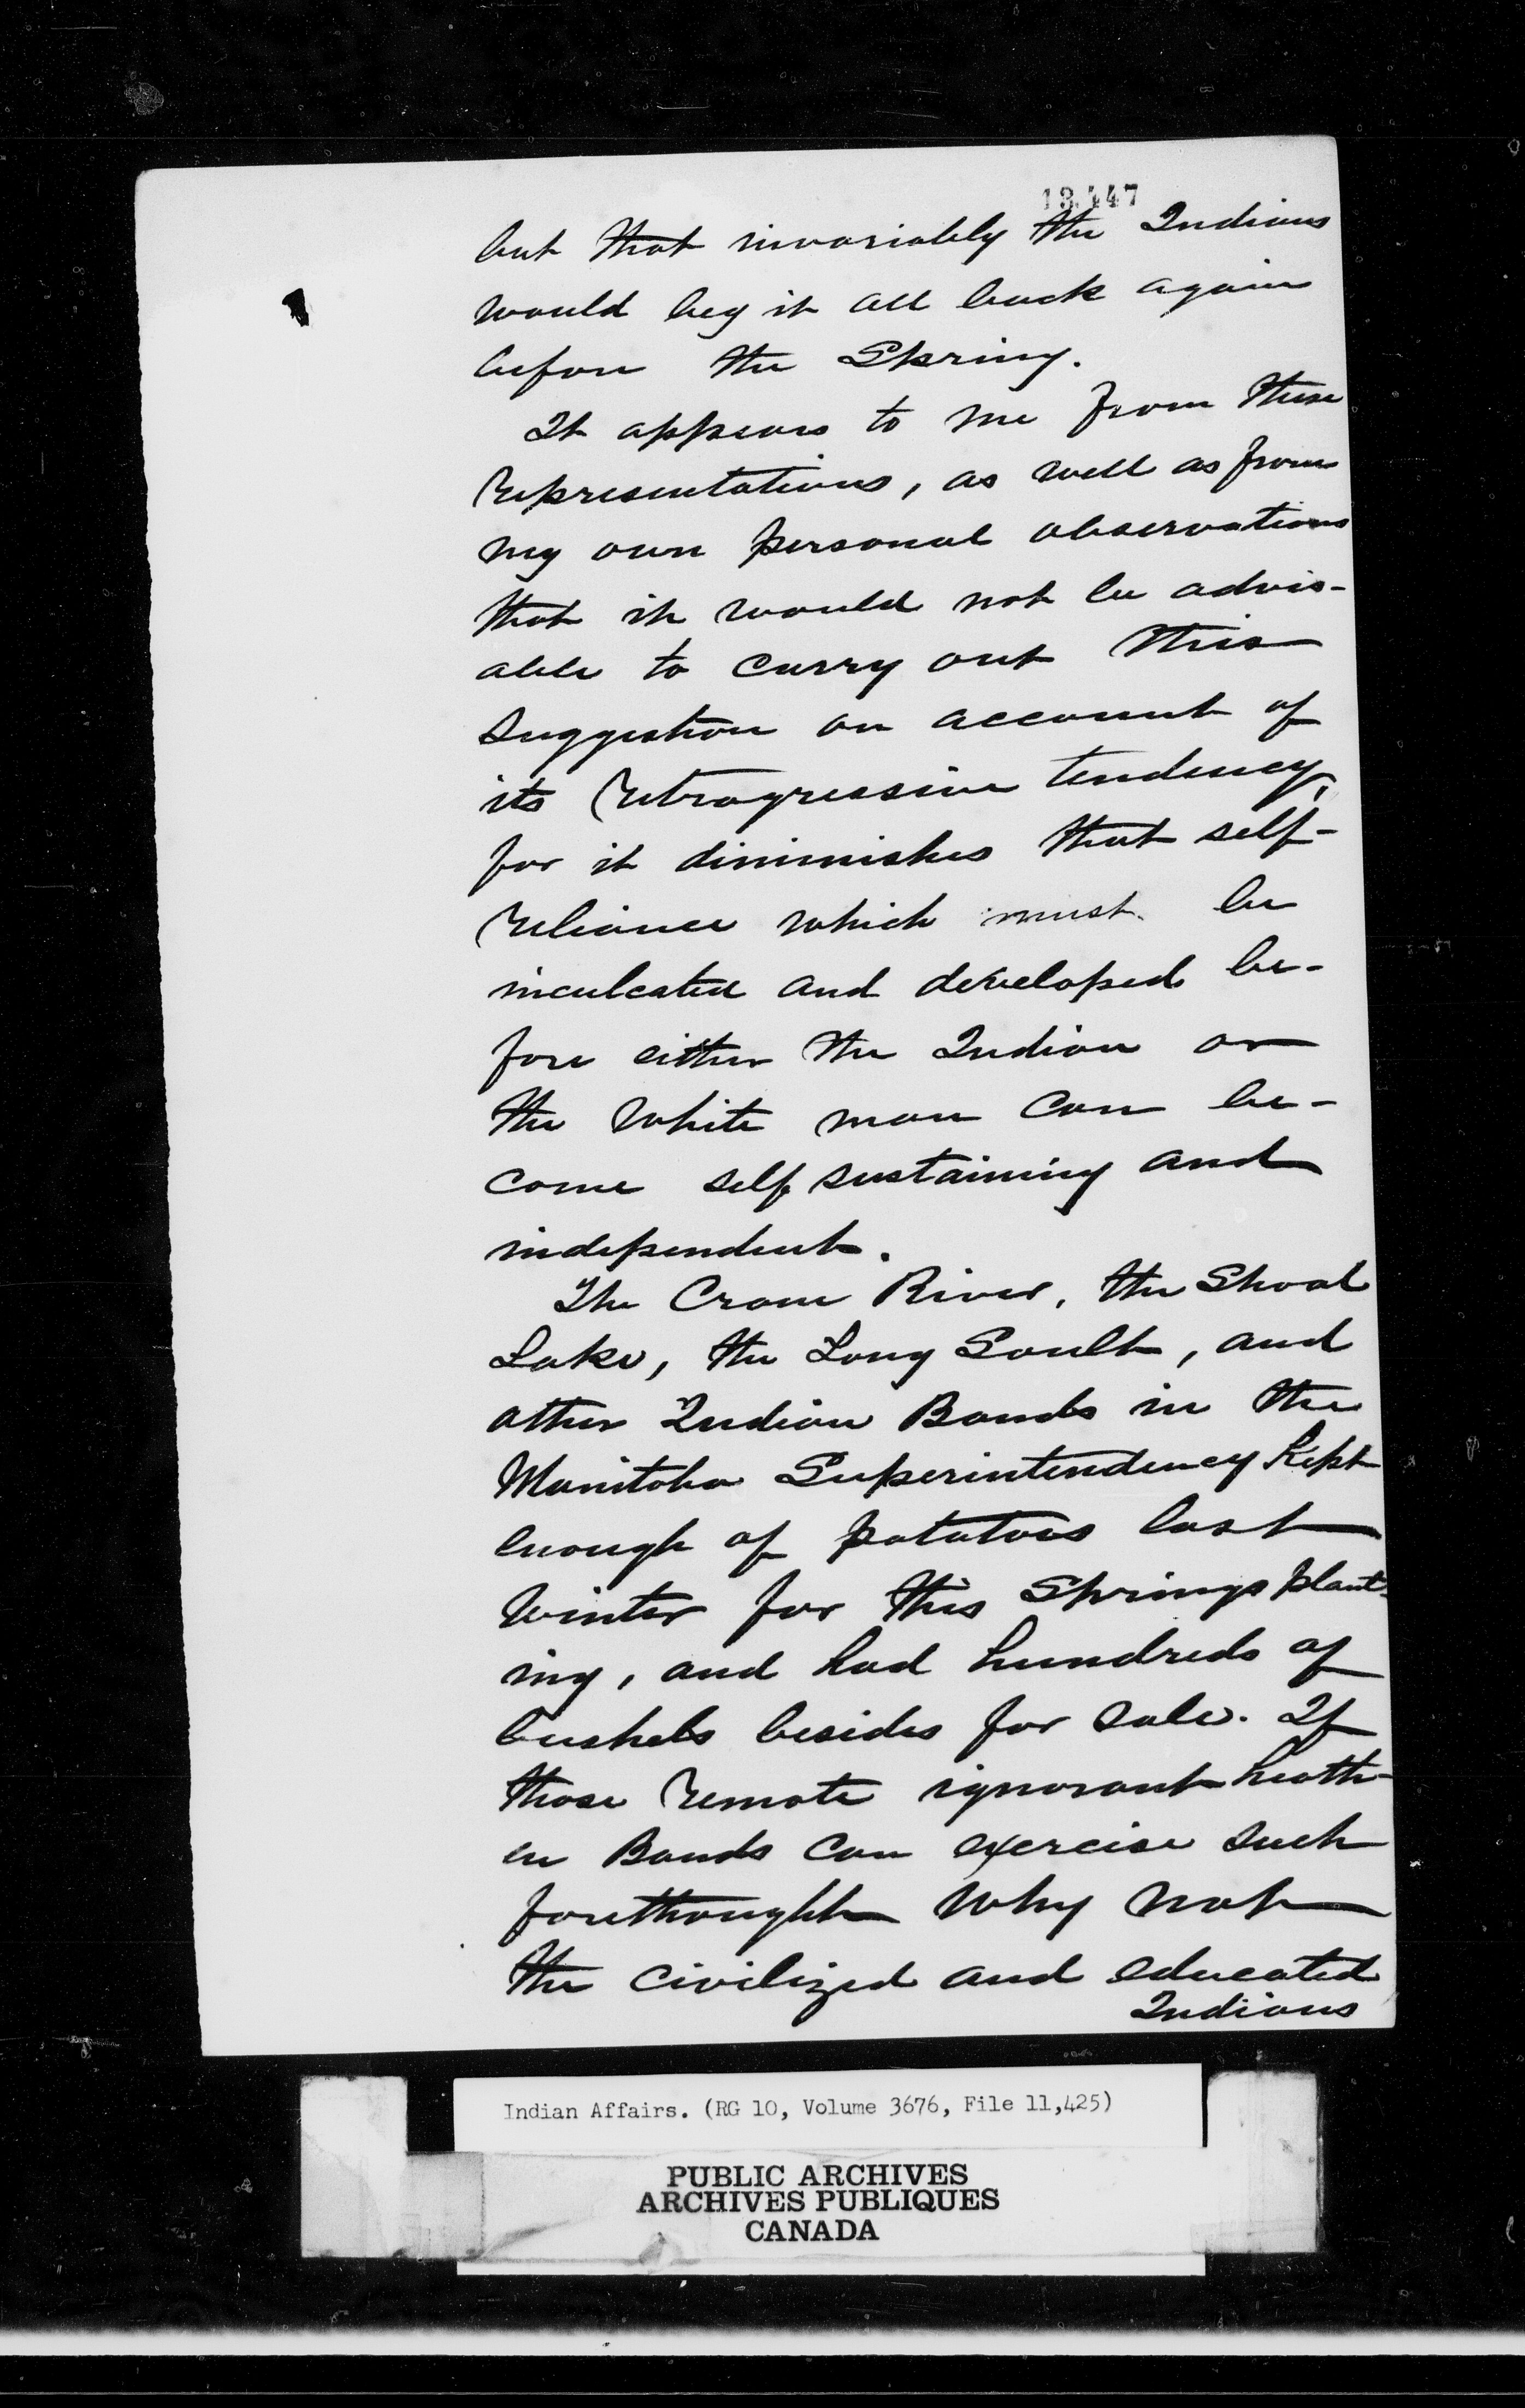 13,447
but that invariably the Indians
would beg it all back again
before the Spring.
It appears to me from these
representations, as well as from
my own personal observations
that it would not be advis-
able to carry out this
suggestion on account of
its retrogressive tendency,
for it diminishes that self-
reliance which must be
inculcated and developed be-
fore either the Indian or
the white man can be-
come self sustaining and
independent.
The Crane River, the Shoal
Lake, the Long Sault, and
other Indian Bands in the
Manitoba Superintendency kept
enough of potatoes last
winter for this Springs plant-
ing, and had hundreds of
bushels besides for sale. If
those remote ignorant heath-
en Bands can exercise such
forethought why not
the civilized and educated
Indians
Indian Affairs. (RG 10, Volume 3676, File 11,425)
PUBLIC ARCHIVES
ARCHIVES PUBLIQUES
CANADA